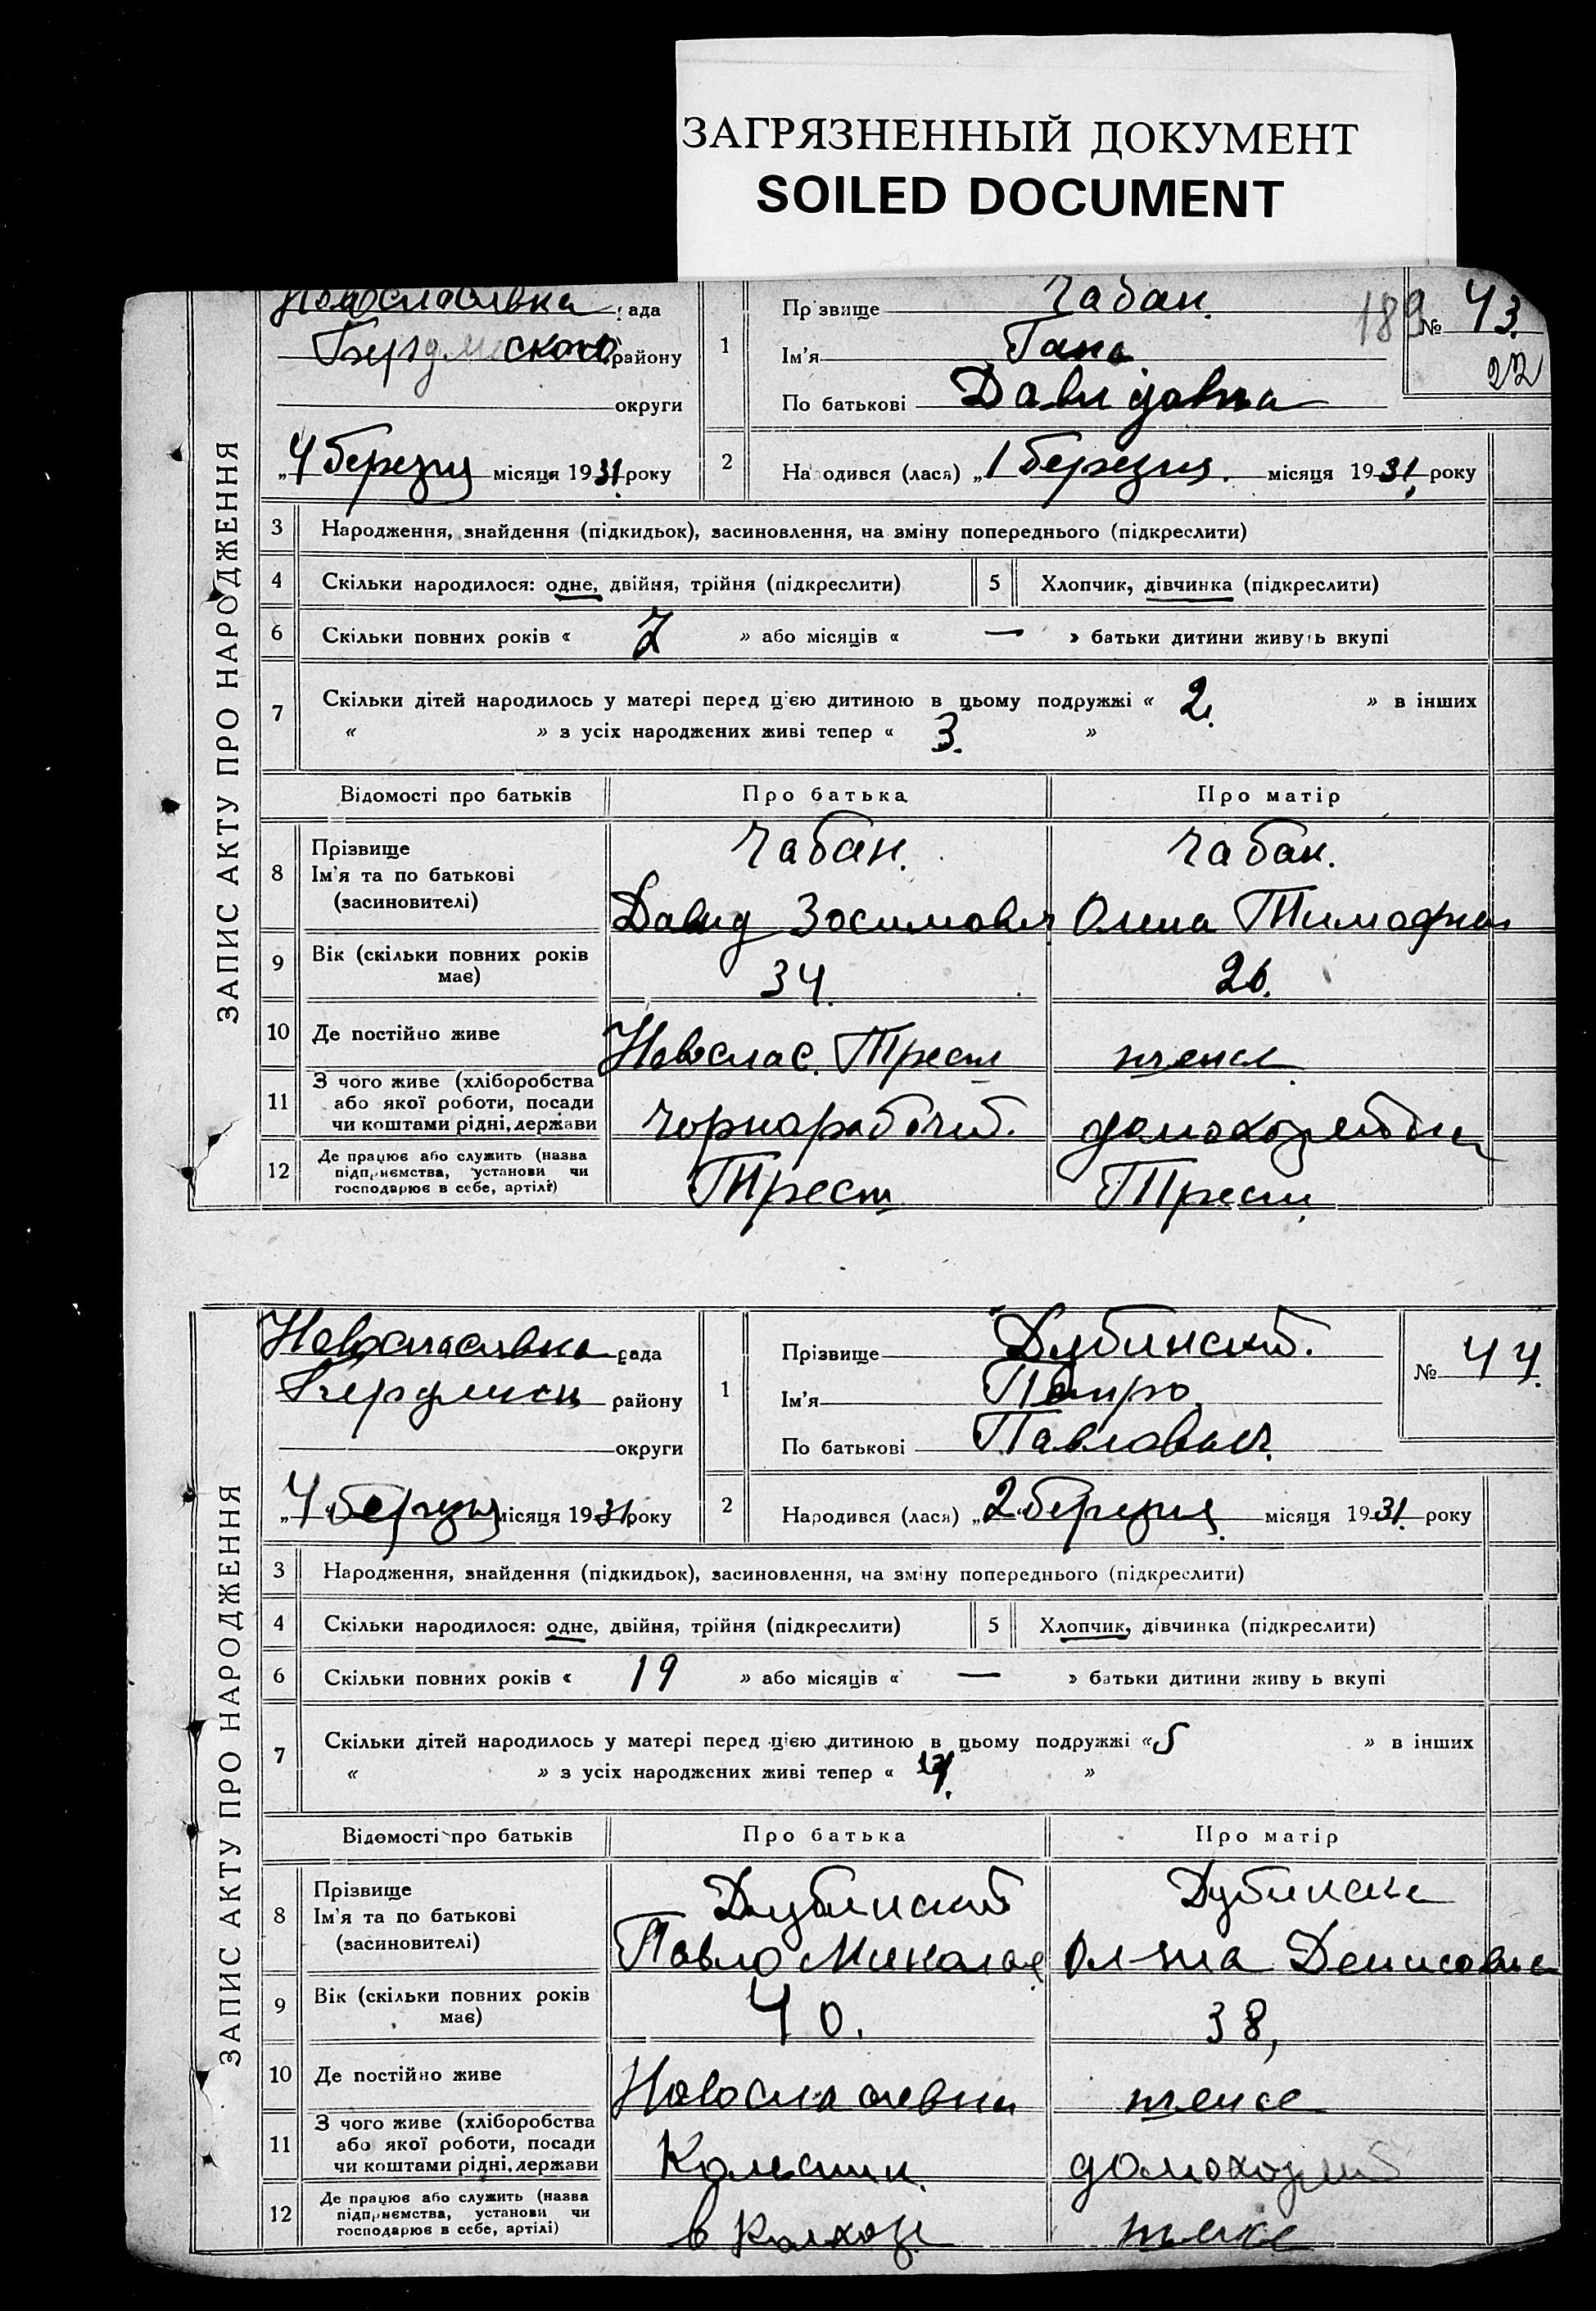 ЗАГРЯЗНЕННЫЙ ДОКУМЕНТ
SOILED DOCUMENT
ЗАПИС АКТУ ПРО НАРОДЖЕННЯ
Новоспасівка рада
Бердянского району
округи
„4 березня місяця 1931 року
1 Прізвище Чабан.
Ім'я Гана
По батькові Давидовна
189 № 43.
22
2 Народився (лася) „1 березня. місяця 1931, року
3 Народження, знайдення (підкидьок), засиновлення, на зміну попереднього (підкреслити)
4 Скільки народилося: одне, двійня, трійня (підкреслити) 5 Хлопчик, дівчинка (підкреслити)
6 Скільки повних років « 7 » або місяців « — » батьки дитини живуть вкупі
7 Скільки дітей народилось у матері перед цією дитиною в цьому подружжі « 2. » в інших
« » з усіх народжених живі тепер « 3. »
Відомості про батьків Про батька Про матір
8 Прізвище
Ім'я та по батькові
(засиновителі)
Чабан. Чабан.
Давид Зосимович Олена
9 Вік (скільки повних років має) 34. 26.
10 Де постійно живе Новоспас. Трест теж
11 З чого живе (хліборобства
або якої роботи, посади
чи коштами рідні, держави
Чорнарабочий.
12 Де працює або служить (назва
підприємства, установи чи
господарює в себе, артілі)
Трест Трест
ЗАПИС АКТУ ПРО НАРОДЖЕННЯ
Новоспасівка рада
району
округи
„4 березня місяця 1931 року
1 Прізвище Дубинский.
Ім'я Петро
По батькові Павлович.
№ 44.
2 Народився (лася) „2 березня. місяця 1931. року
3 Народження, знайдення (підкидьок), засиновлення, на зміну попереднього (підкреслити)
4 Скільки народилося: одне, двійня, трійня (підкреслити) 5 Хлопчик, дівчинка (підкреслити)
6 Скільки повних років « 19 » або місяців « — » батьки дитини живуть вкупі
7 Скільки дітей народилось у матері перед цією дитиною в цьому подружжі « 5 » в інших
« » з усіх народжених живі тепер « »
Відомості про батьків Про батька Про матір
8 Прізвище
Ім'я та по батькові
(засиновителі)
Дубинский Дубинска
Павло Денисовна
9 Вік (скільки повних років має) 40. 38,
10 Де постійно живе Новоспасівка теж
11 З чого живе (хліборобства
або якої роботи, посади
чи коштами рідні, держави
12 Де працює або служить (назва
підприємства, установи чи
господарює в себе, артілі)
в колхозе теже